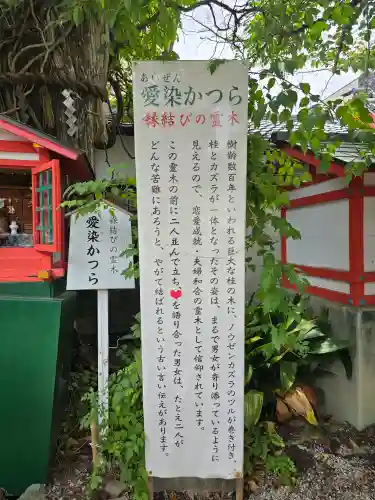 あいぜん
愛染かつら
縁結びの霊木
樹齢数百年と言われる巨大な桂の木に、ノウゼンカズラのツルが巻き付き
桂とカズラが一体となった姿は、まるで男女が寄り添っているように
見えるので、恋愛成就・夫婦和合の霊木として信仰されています。
この木の前に二人並んで立ち♥を語り合った男女は、たとえ二人が
どんな境にあろうと、やがて結ばれるという言い伝えがあります。
愛染かつら